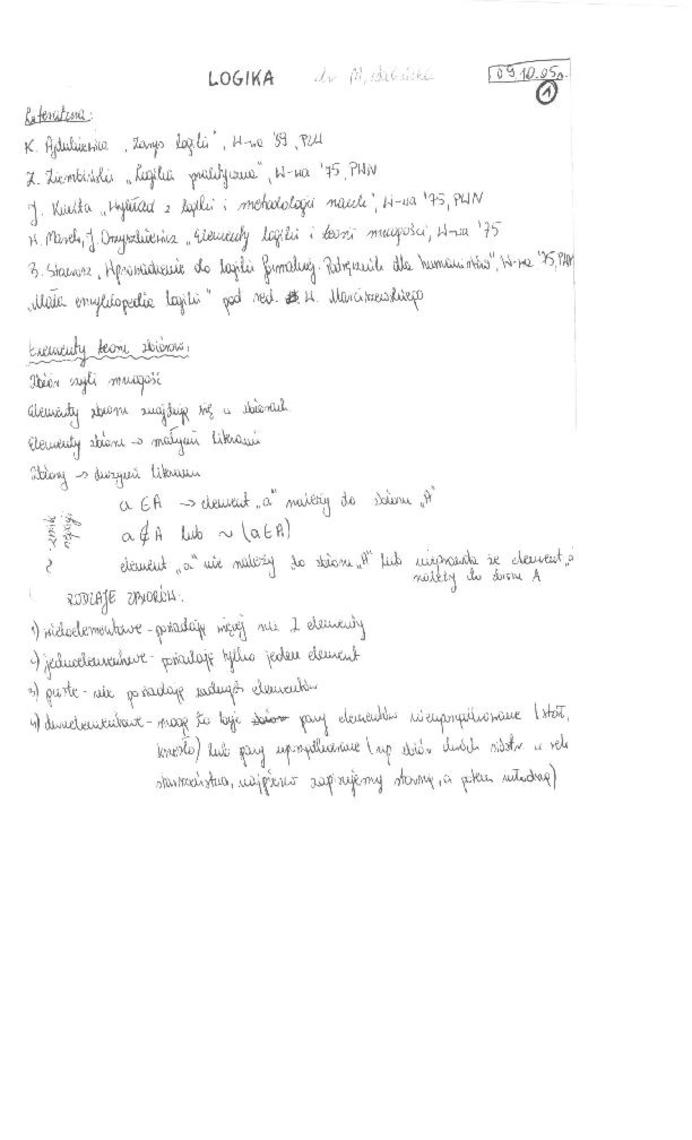 LOGIKA dr M.
09.10.05r.
1
Literatura:
K. Ajdukiewicz „Zarys logiki", W-wa '59, PWN
Z. Ziembiński „Logika praktyczna", W-wa '75, PWN
J. Kmita „Wykład z logiki i metodologii nauk", W-wa '75, PWN
W. Marek, J. Onyszkiewicz „Elementy logiki i teorii mnogości", W-wa '75
B. Stanosz „Wprowadzenie do logiki formalnej. Podręcznik dla humanistów", W-wa '75, PWN
„Mała encyklopedia logiki" pod red. W. Marciszewskiego
Elementy teorii zbiorów:
Zbiór czyli mnogość
Elementy zbioru znajdują się w zbiorach.
Elementy zbioru → małymi literami
Zbiory → dużymi literami
a ∈ A → element „a" należy do zbioru „A"
~ - znak negacji
a ∉ A lub ~ (a ∈ A)
element „a" nie należy do zbioru „A" lub nieprawda że element „a
należy do zbioru A
RODZAJE ZBIORÓW:
1) wieloelementowe - posiadają więcej niż 2 elementy
2) jednoelementowe - posiadają tylko jeden element
3) puste - nie posiadają żadnych elementów
4) dwuelementowe - mogą to być pary elementów nieuporządkowane (stół,
krzesło) lub pary uporządkowane (np zbiór dwóch sióstr w rel.
starszeństwa, najpierw zapisujemy starszą, a potem młodszą)